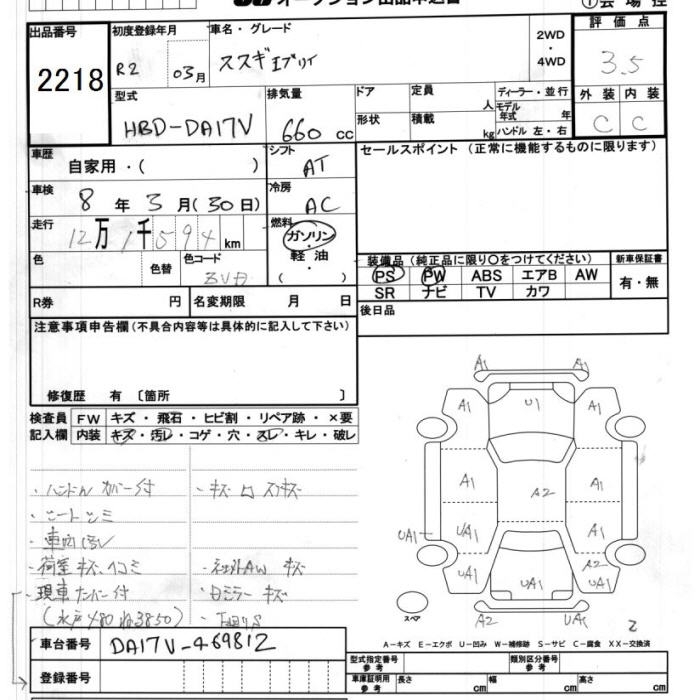 出品番号 初度登録年月 車名・グレード 2WD・4WD 評価点
2218 R2 03月 スズキエブリイ 3.5
型式 排気量 ドア 定員 人 ディーラー・並行 外装 内装
HBD-DA17V 660 cc 形状 積載 kg モデル年式 年 ハンドル 左・右 C C
車歴 自家用・( ) シフト AT セールスポイント (正常に機能するものに限ります)
車検 8年 3月(30日) 冷房 AC
走行 12万1千594km 燃料 ガソリン・軽油・( )
色 色替 色コード 装備品 (純正品に限り○をつけてください) 新車保証書
PS PW ABS エアB AW 有・無
SR ナビ TV カワ
R券 円 名変期限 月 日 後日品
注意事項申告欄(不具合内容等は具体的に記入して下さい)
修復歴 有 〔箇所 〕
検査員 FW キズ・飛石・ヒビ割・リペア跡・×要
記入欄 内装 キズ・汚レ・コゲ・穴・スレ・キレ・破レ
A1 A1
A1 U1 A1
A1 A2 A1
UA1 UA1 A1
UA1 UA1 A2 UA1
スペア A2 UA1 2
・ハンドルカバー付
・シートシミ
・車内汚レ
・荷室キズ、ヘコミ ・社外AWキズ
・現車ナンバー付 ・ミラーキズ
(水戸480ね3850)
A-キズ E-エクボ U-凹み W-補修跡 S-サビ C-腐食 XX-交換済
車台番号 DA17V-469812
登録番号
型式指定番号 参考 類別区分番号 参考
車庫証明用 参考 長さ cm 幅 cm 高さ cm